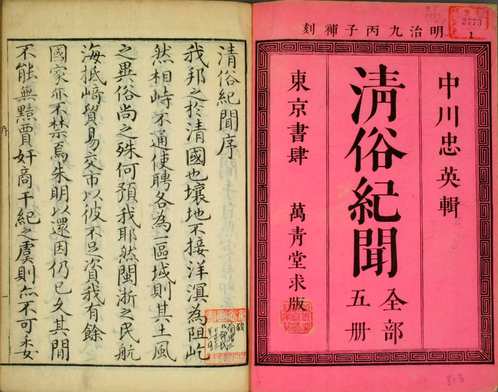 明治九丙子稗刻
中川忠英輯
清俗紀聞
全部五册
東京書肆 萬青堂求版
2773
1
清俗紀聞序
我邦之於清國也壤地不接洋溟為阻屹
然相峙不通使聘各為一區域則其土風
之異俗尚之殊何預我耶然閩浙之民航
海抵崎貿易交市以彼不足資我有餘
國家亦不禁焉朱明以還因仍已久其間
不能無黠賈奸商干紀之虞則亦不可委
序